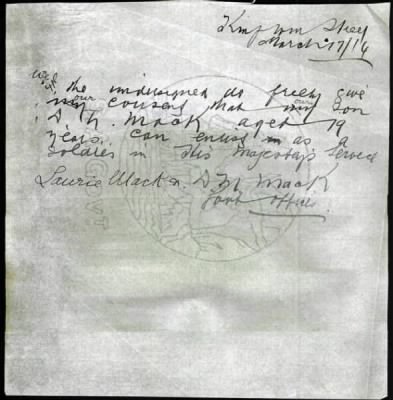 King Wm Street
March 17/16
We
I the undersigned do freely give
my our consent that my our son
D. H. Mack aged 19
years. can enlist as a
Soldier in His Majestys Service
Laurie Mack
Mack